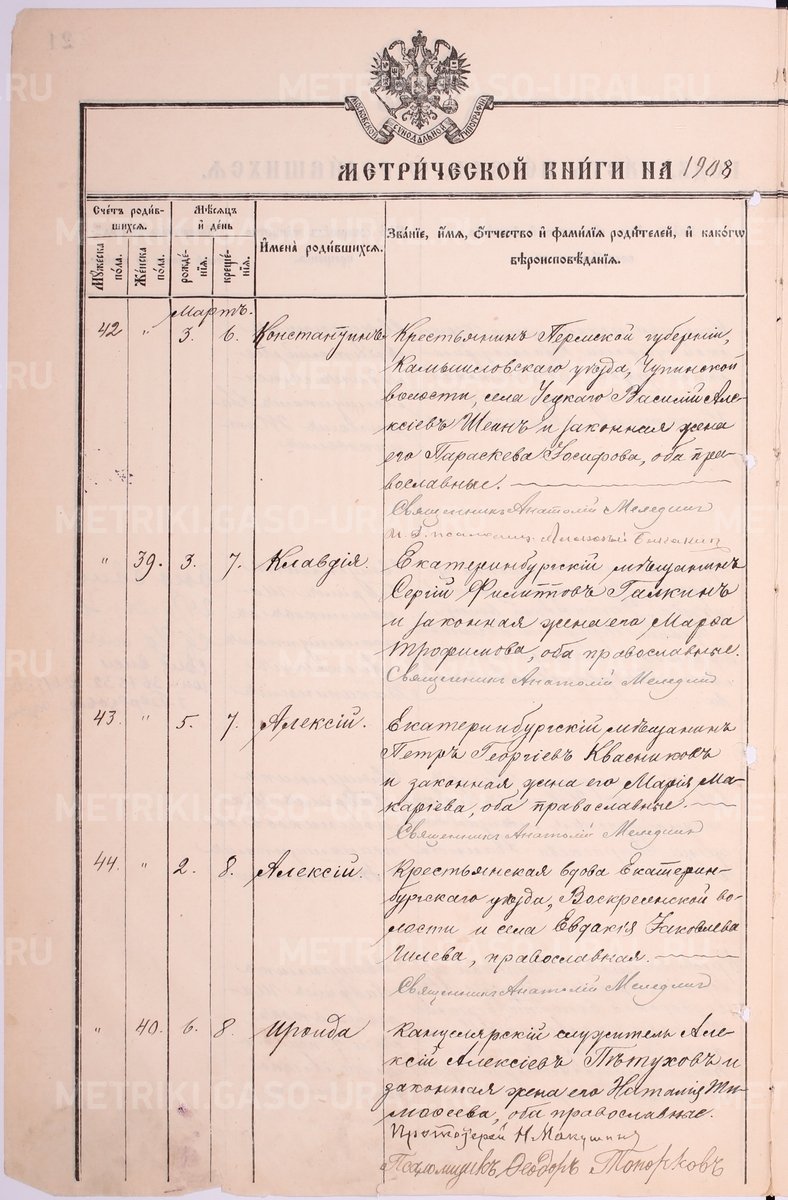 МОСКОВСКОЙ СѴНОДАЛЬНОЙ ТИПОГРАФІИ
МЕТРИ́ЧЕСКОЙ КНИ́ГИ НА 1908
Сче́тъ роди́в-
шихся.
Мѣ́сяцъ
и҆ де́нь
И҆мена̀ роди́вшихся.
Зва́ніе, и҆́мя, ѻ҆́тчество и҆ фами́лія роди́телей, и҆ како́гѡ
вѣроисповѣ́данія.
Мꙋ́жеска по́ла.
Же́нска по́ла.
рожде́-нія.
креще́-нія.
Мартъ.
42 " 3. 6. Константинъ Крестьянинъ Пермской губерніи,
Камышловскаго уѣзда, Чупинской
волости, села Уецкаго Василій Але-
ксіевъ Шеинъ и законная жена
его Параскева Іосифова, оба пра-
вославные.
Священникъ Анатолій Меледин
и. д. псаломщ. Алексѣй
" 39. 3. 7. Клавдія. Екатеринбургскій мѣщанинъ
Сергій Филипповъ Галкинъ
и законная жена его Марѳа
Трофимова, оба православные.
Священникъ Анатолій Меледин
43. " 5. 7. Алексій. Екатеринбургскій мѣщанинъ
Петръ Георгіевъ Квасниковъ
и законная жена его Марія Ма-
каріева, оба православные.
Священникъ Анатолій Меледин
44. " 2. 8. Алексій. Крестьянская вдова Екатерин-
бургскаго уѣзда, Воскресенской во-
лости и села Евдакія Іаковлева
Гилева, православная.
Священникъ Анатолій Меледин
" 40. 6. 8. Ираида Канцелярскій служитель Але-
ксій Алексіевъ Пѣтуховъ и
законная жена его Наталія Ти-
моѳеева, оба православные.
Протоіерей Н. Макушинъ
Псаломщикъ Ѳеодоръ Топорковъ
METRIKI.GASO-URAL.RU